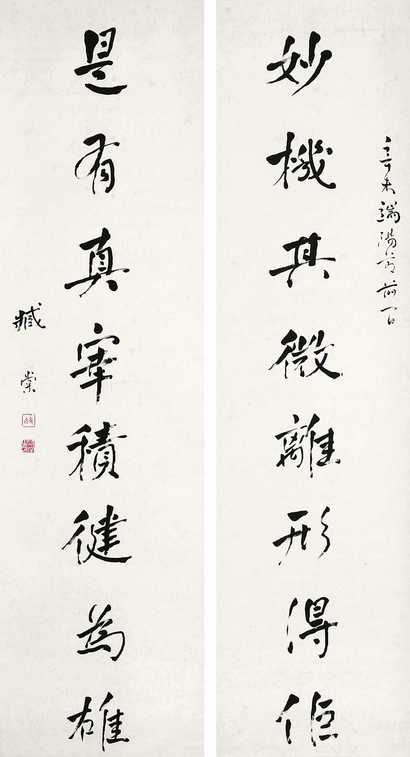 辛未端陽節前一日
妙機其微離形得佀
是有真宰積徤為雄
臧